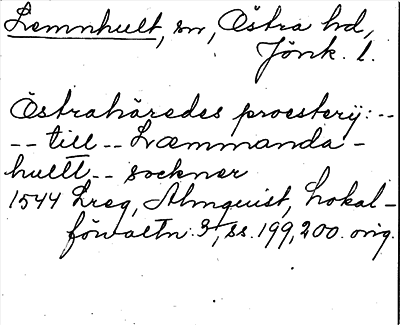 Lemnhult, sn, Östra hd,
Jönk. l.
Östrahäredes proesterij: --
-- till -- Læmmanda-
hultt -- sockner
1544 Lreg, Almquist, Lokal-
förvaltn. 3, ss. 199, 200. orig.